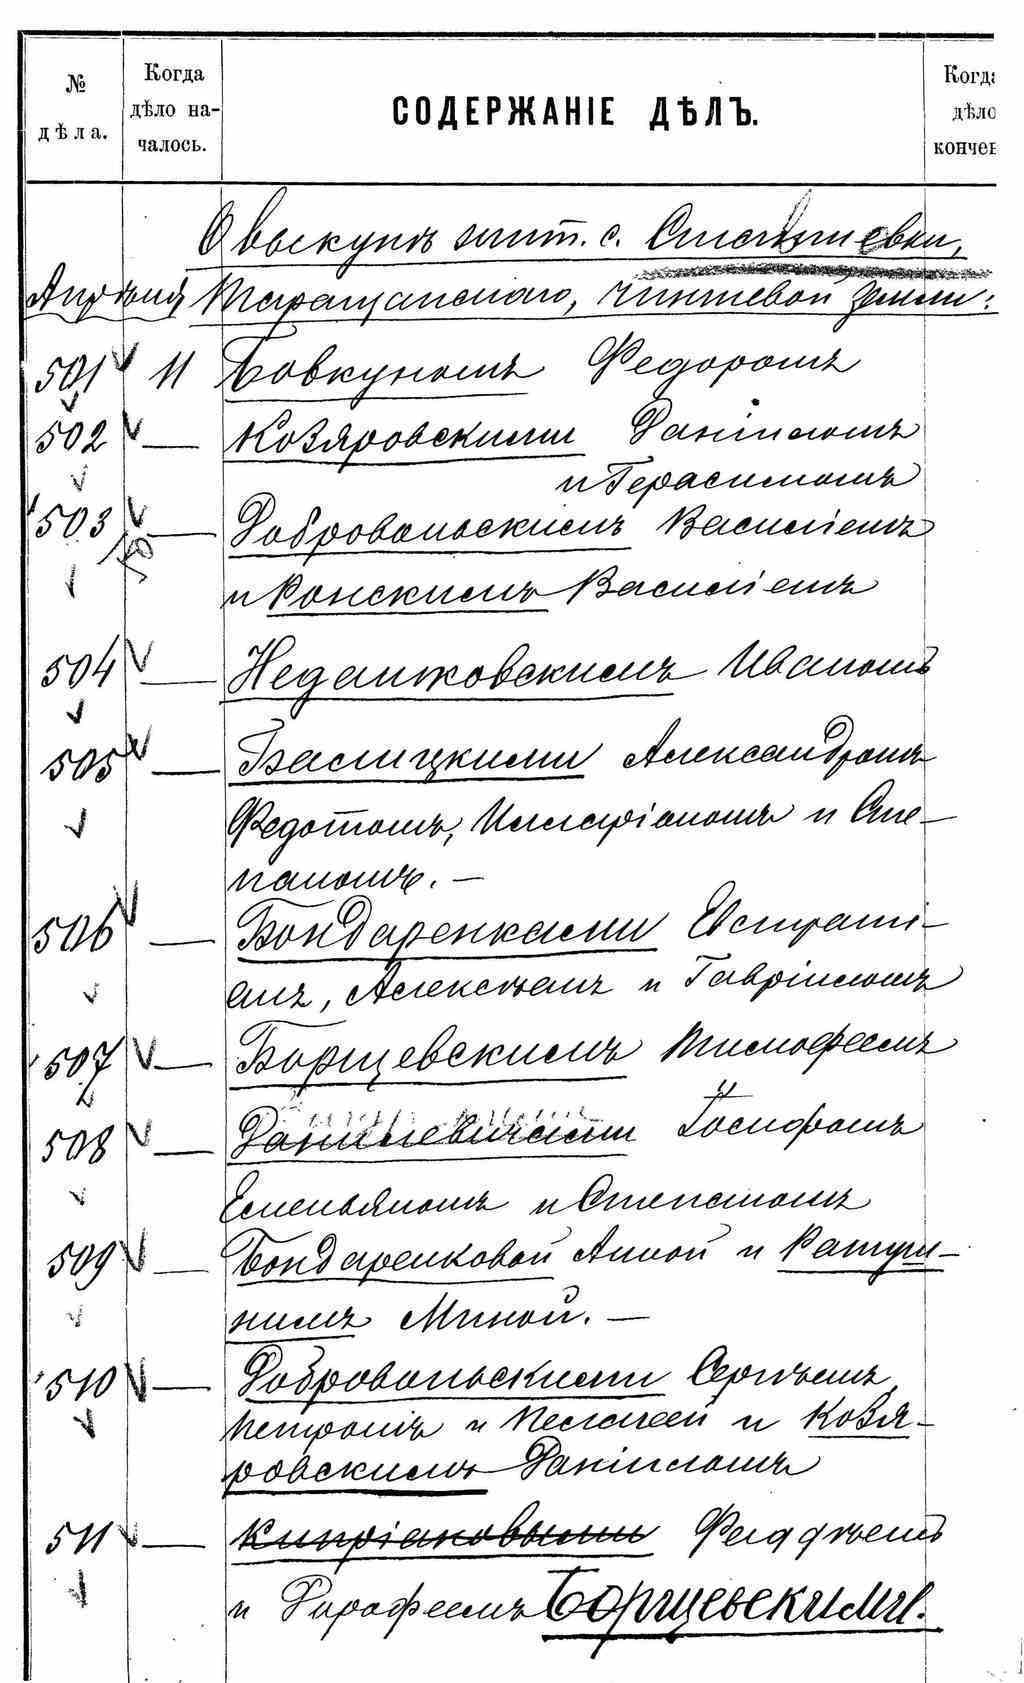 № дѣла.
Когда дѣло началось.
СОДЕРЖАНІЕ ДѢЛЪ.
Когда дѣло кончен
О выкупѣ жит. с. Степановки,
Апрѣля Таращанскаго, чиншевой земли:
501 11 Бовкуномъ Федоромъ
502 — Козяровскими Даніиломъ
и Герасимомъ
503 — Добровольскимъ Василіемъ
и Конскимъ Василіемъ
504 — Недашковскимъ Иваномъ
505 — Басицкими Александромъ
Федотомъ, Илларіономъ и Сте-
паномъ. —
506 — Бондаренками Евстраті-
емъ, Алексѣемъ и Гавріиломъ
507 — Борщевскимъ Тимофеемъ
508 — Данилевичами Іосифомъ
Емельяномъ и Степаномъ
509 — Бондаренковой Анной и Ратуш-
нимъ Миной. —
510 — Добровольскими Сергѣемъ,
Петромъ и Пелагеей и Козя-
ровскимъ Даніиломъ
511 — Кипріановыми Фаддѣемъ
и Дорофеемъ Борщевскими.